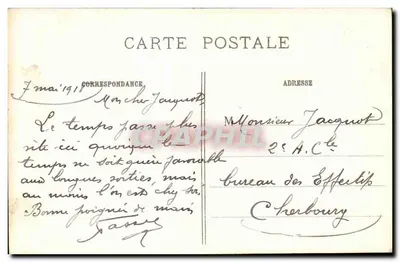 CARTE POSTALE
CORRESPONDANCE
ADRESSE
7 mai 191
Mon cher Jacquot,
Le temps passe plus
vite ici quoique le
temps ne soit guère favorable
aux longues sorties, mais
au moins l'on est chez soi
Bonne poignée de main
Monsieur Jacquot
2e A. Cle
bureau des Effectifs
Cherbourg